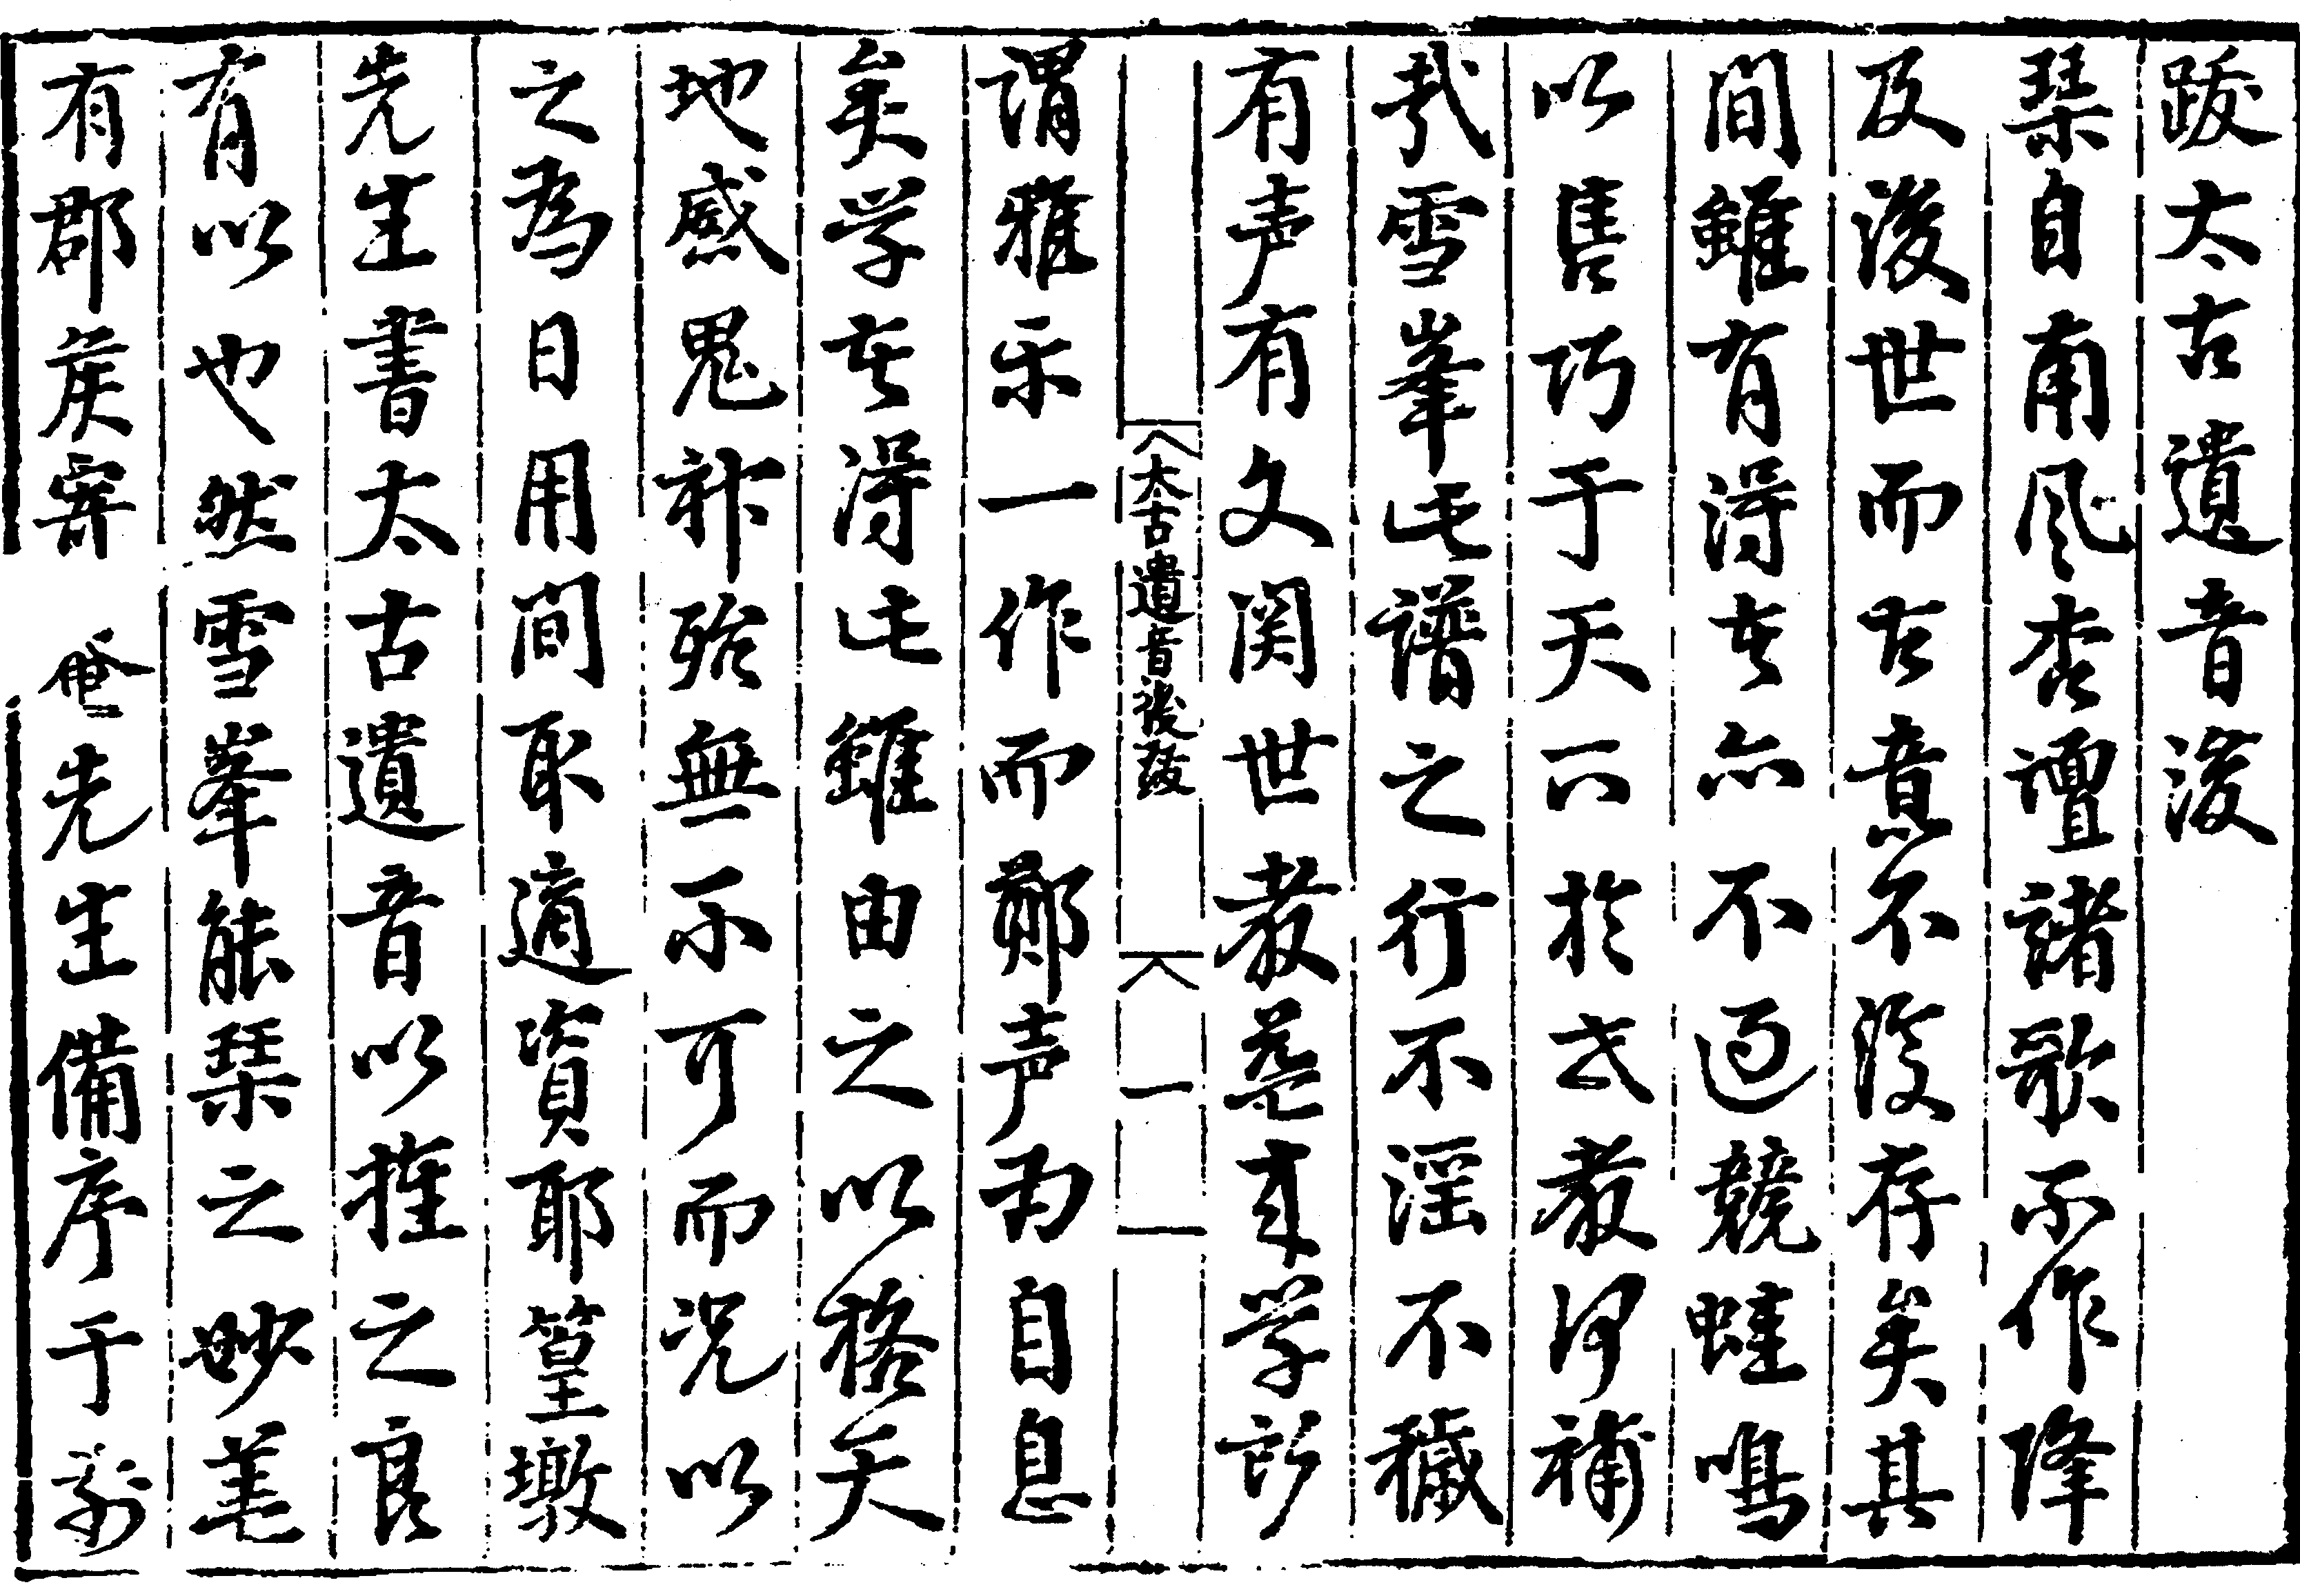 跋太古遺音後
琴自南风杏壇諸歌不作降
及後世而古意不復存矣其
间雖有得者亦不過競蛙鳴
以售巧于天下於世教何補
哉雪峯此譜之行不淫不穢
有声有文関世教甚矣学所
太古遺音後跋
一
謂雅乐一作而鄭声为自息
矣学者得此雖由之以格天
地感鬼神殆無不可而况以
之为日用间取適資耶篁墩
先生書太古遺音以推之良
有以也然雪峯能琴之妙羙
有郡侯寒菴先生備序于前